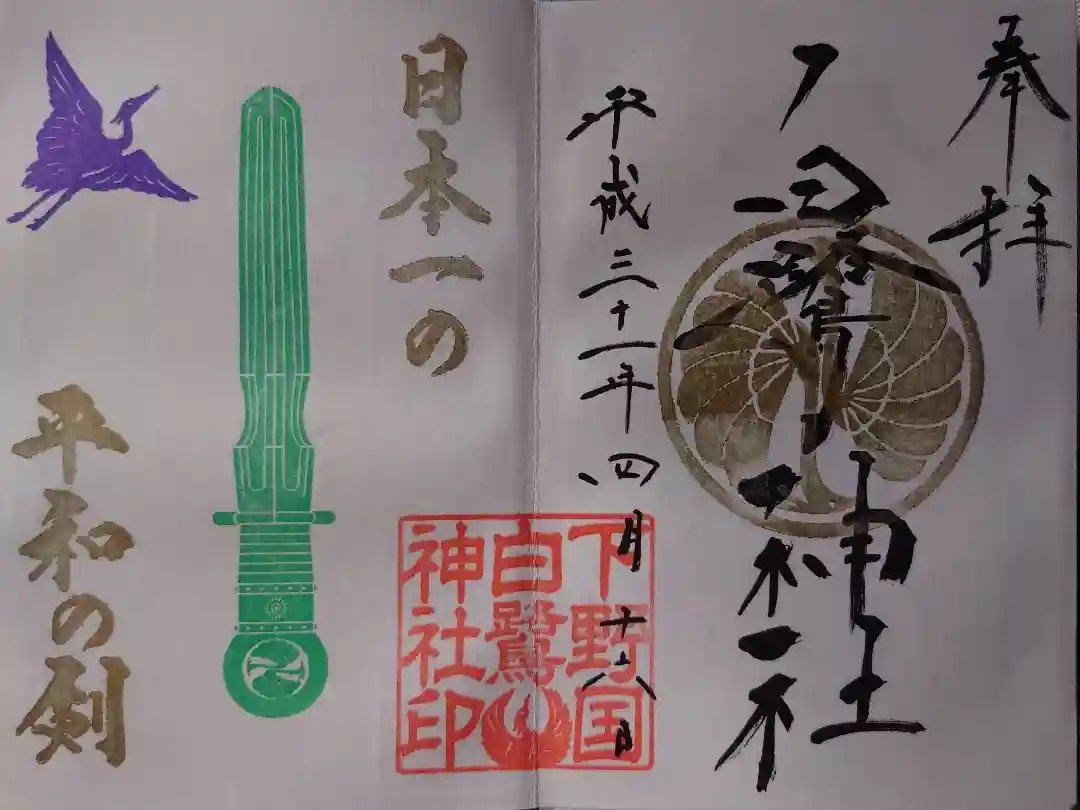 奉拝
白鷺神社
平成三十一年四月十八日
下野国
白鷺
神社印
日本一の
平和の剣